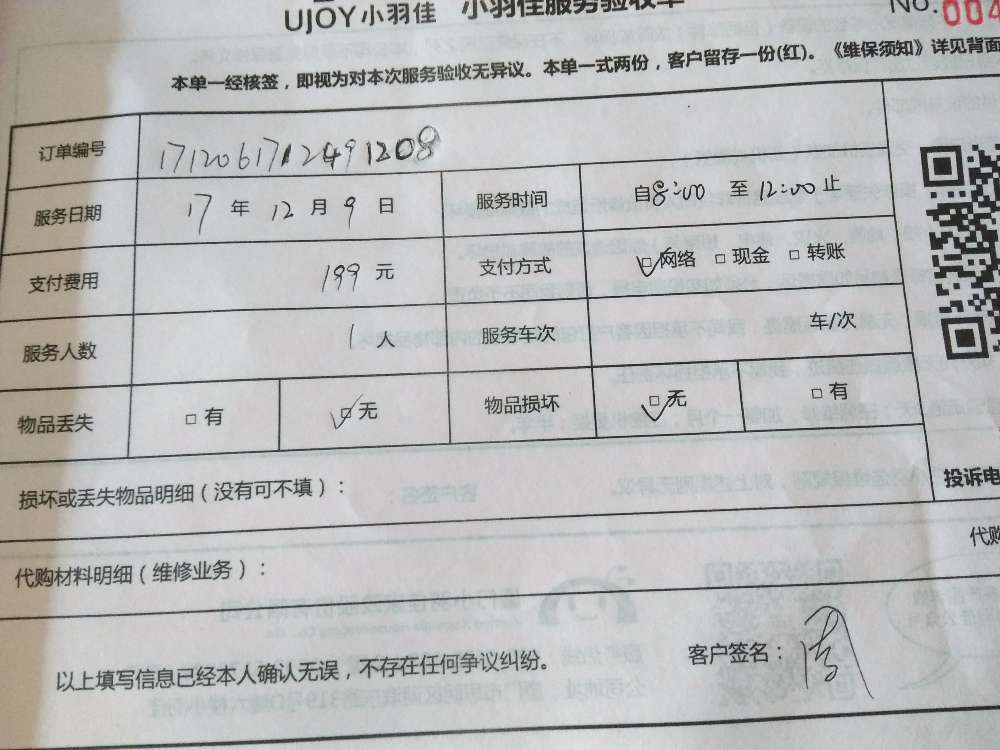 UJOY小羽佳 小羽佳服务验收单
No.004
本单一经核签，即视为对本次服务验收无异议。本单一式两份，客户留存一份(红)。《维保须知》详见背面
订单编号 1712061712491208
服务日期 17 年 12 月 9 日 服务时间 自8:00 至12:00止
支付费用 199 元 支付方式 □网络 □现金 □转账
服务人数 1人 服务车次 车/次
物品丢失 □有 □无 物品损坏 □无 □有
损坏或丢失物品明细（没有可不填）：
投诉电
代购
代购材料明细（维修业务）：
以上填写信息已经本人确认无误，不存在任何争议纠纷。
客户签名：